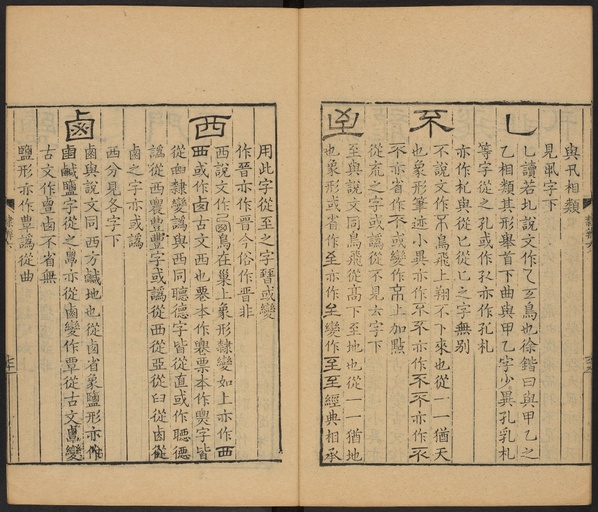 與卂相類
見氣字下
乚
乚讀若軋說文作乁玄鳥也徐鍇曰與甲乙之
乙相類其形舉首下曲與甲乙字少異孔乳札
等字從之孔或作孔亦作孔札
亦作札與從匕從匕之字無別
不
不說文作鳥飛上翔不下來也從一一猶天
也象形筆迹小異亦作不不亦作不不亦作不
不亦省作不或變作上加點
從㐬之字或譌從不見㐬字下
至
至與說文同鳥飛從高下至地也從一一猶地
也象形或省作至亦作變作至至經典相承
用此字從至之字晉或變
作晉亦作晉今俗作晋非
西
西說文作鳥在巢上象形隸變如上亦作西
西或作卤古文西也本作票本作字皆
從隸變譌與西同聽德字皆從直或作聽德
譌從西農豐字或譌從西從亞從臼從鹵從
鹵之字亦或譌
西分見各字下
鹵
鹵與說文同西方鹹地也從鹵省象鹽形亦作
鹵鹹鹽字從之亦從鹵變作覃從古文變
古文作鹵不省無
鹽形亦作覃譌從曲